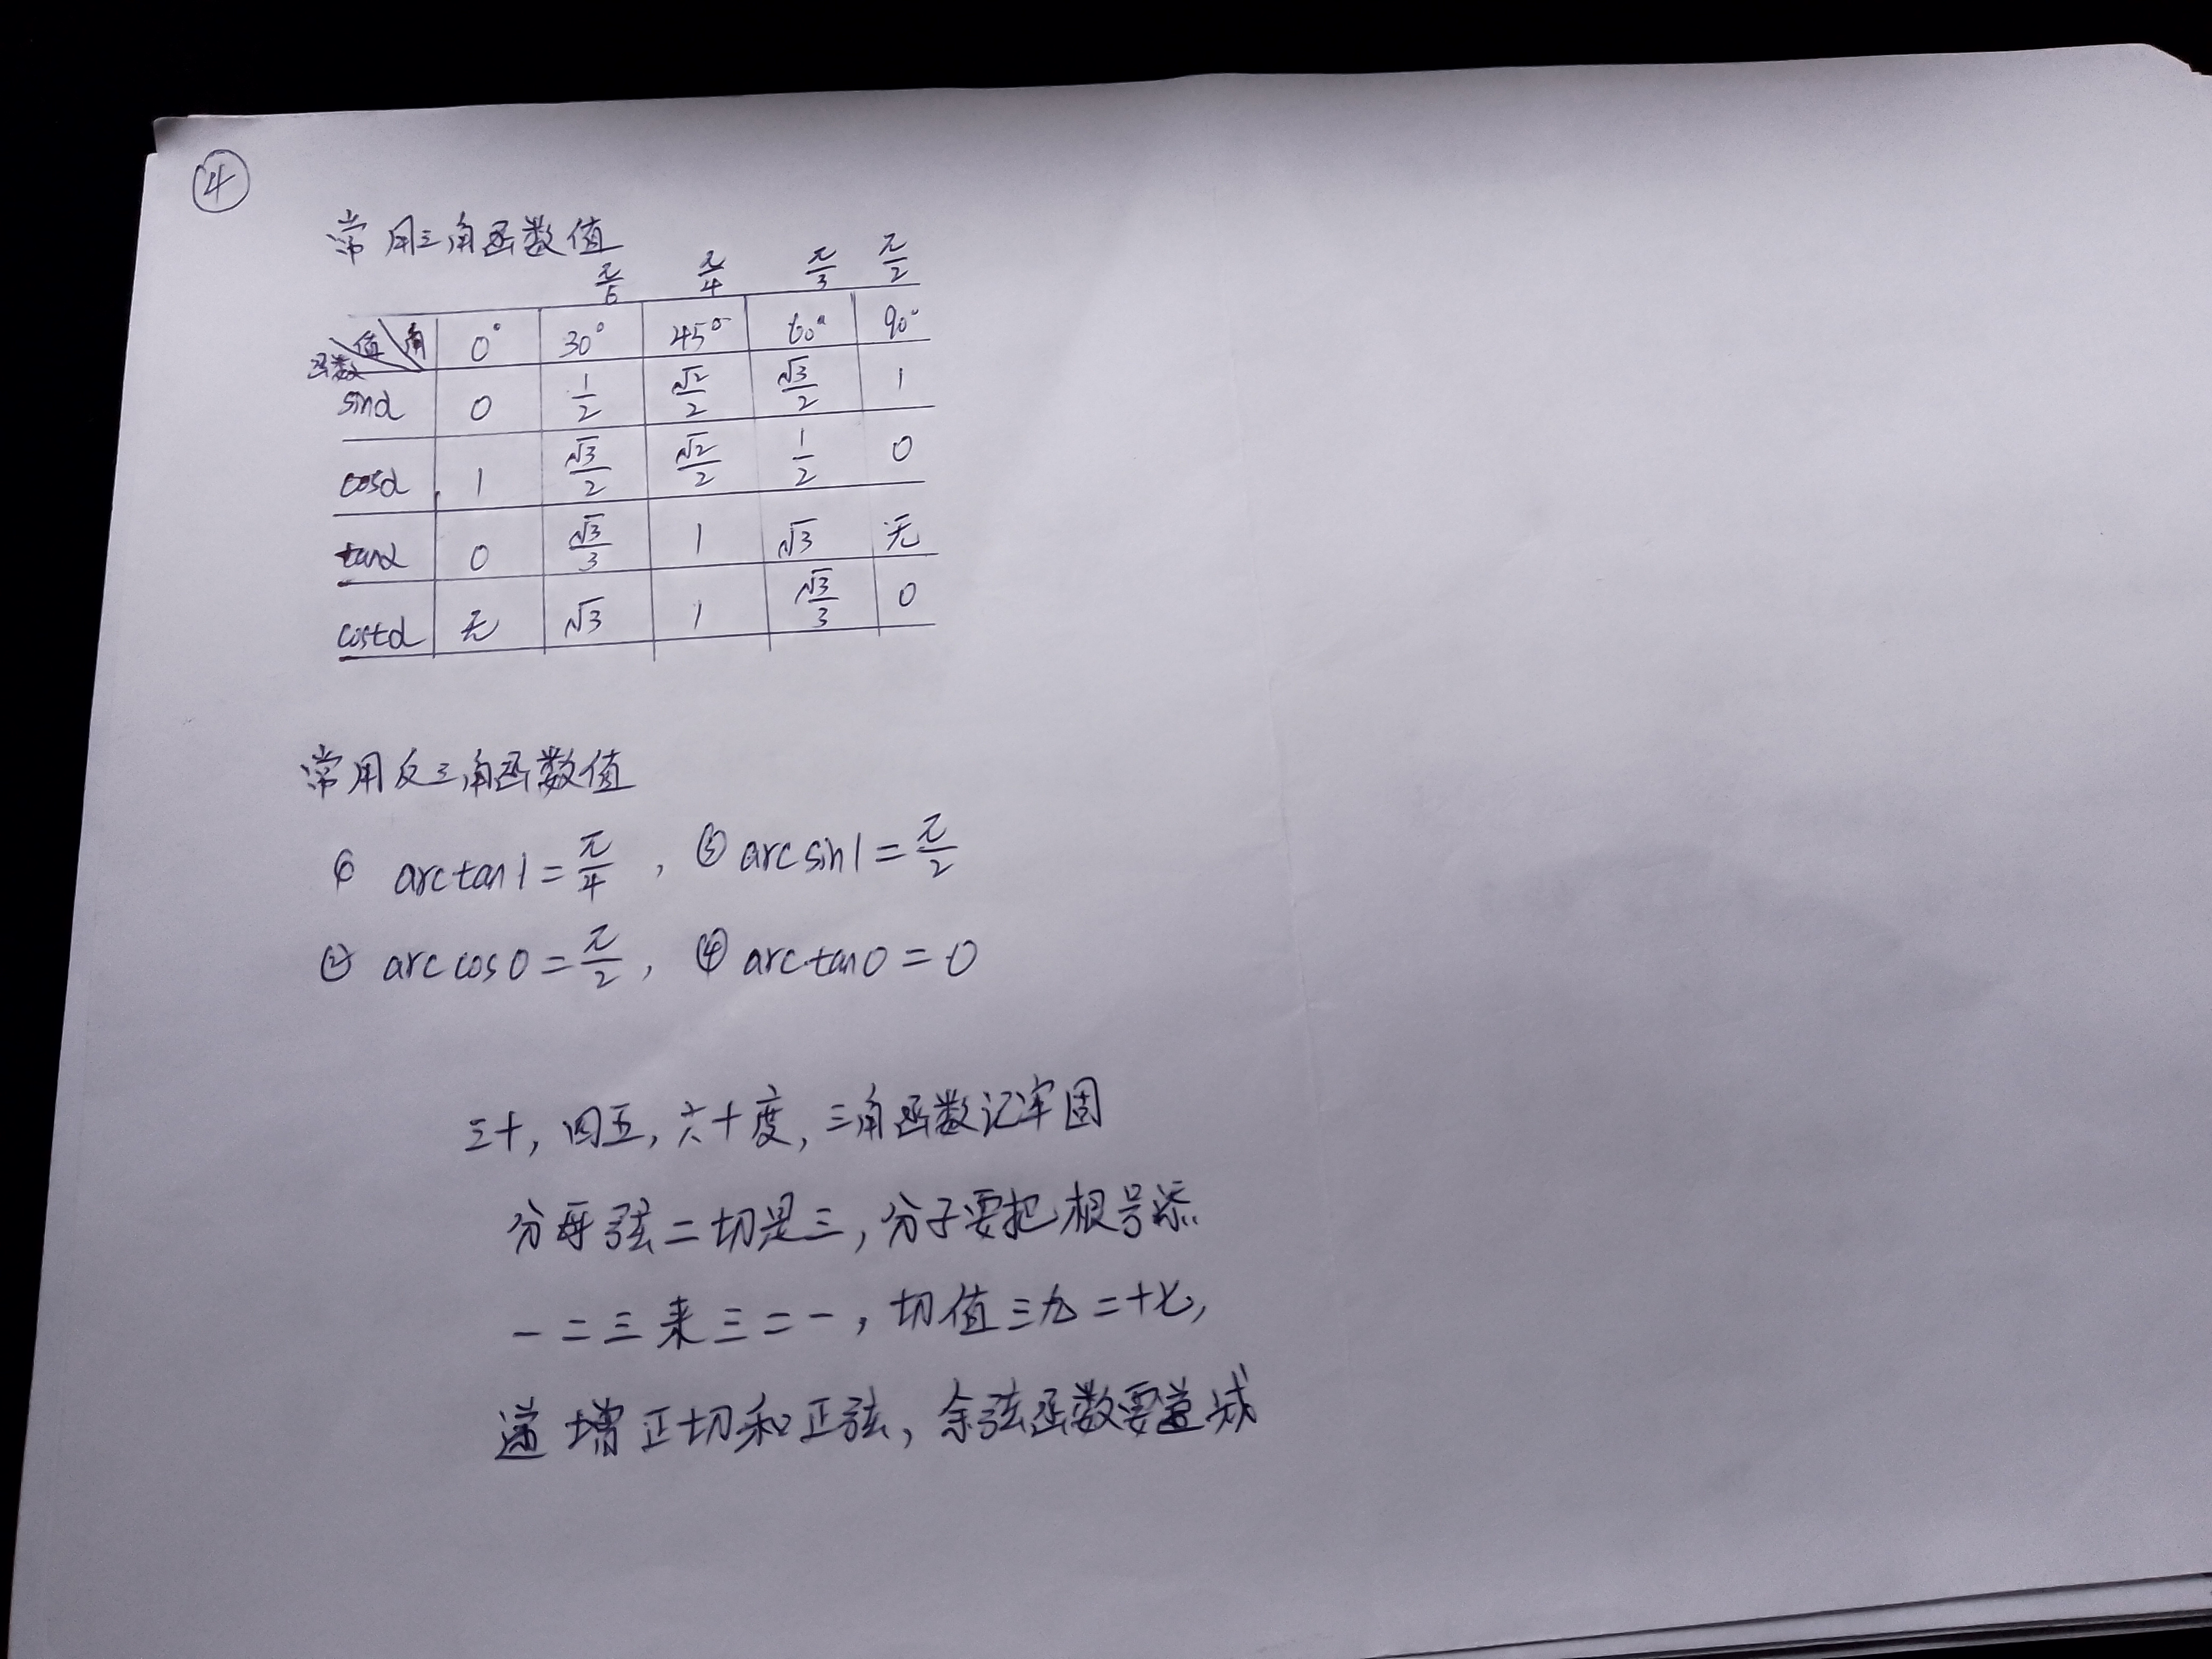 ④
常用三角函数值
π/6 π/4 π/3 π/2
函数 值 角 0° 30° 45° 60° 90°
sinα 0 1/2 √2/2 √3/2 1
cosα 1 √3/2 √2/2 1/2 0
tanα 0 √3/3 1 √3 无
costα 无 √3 1 √3/3 0
常用反三角函数值
① arctan1=π/4, ③ arcsin1=π/2
② arccos0=π/2, ④ arctan0=0
三十,四五,六十度,三角函数记牢固
分母弦二切是三,分子要把根号添
一二三来三二一,切值三九二十七,
递增正切和正弦,余弦函数要递减